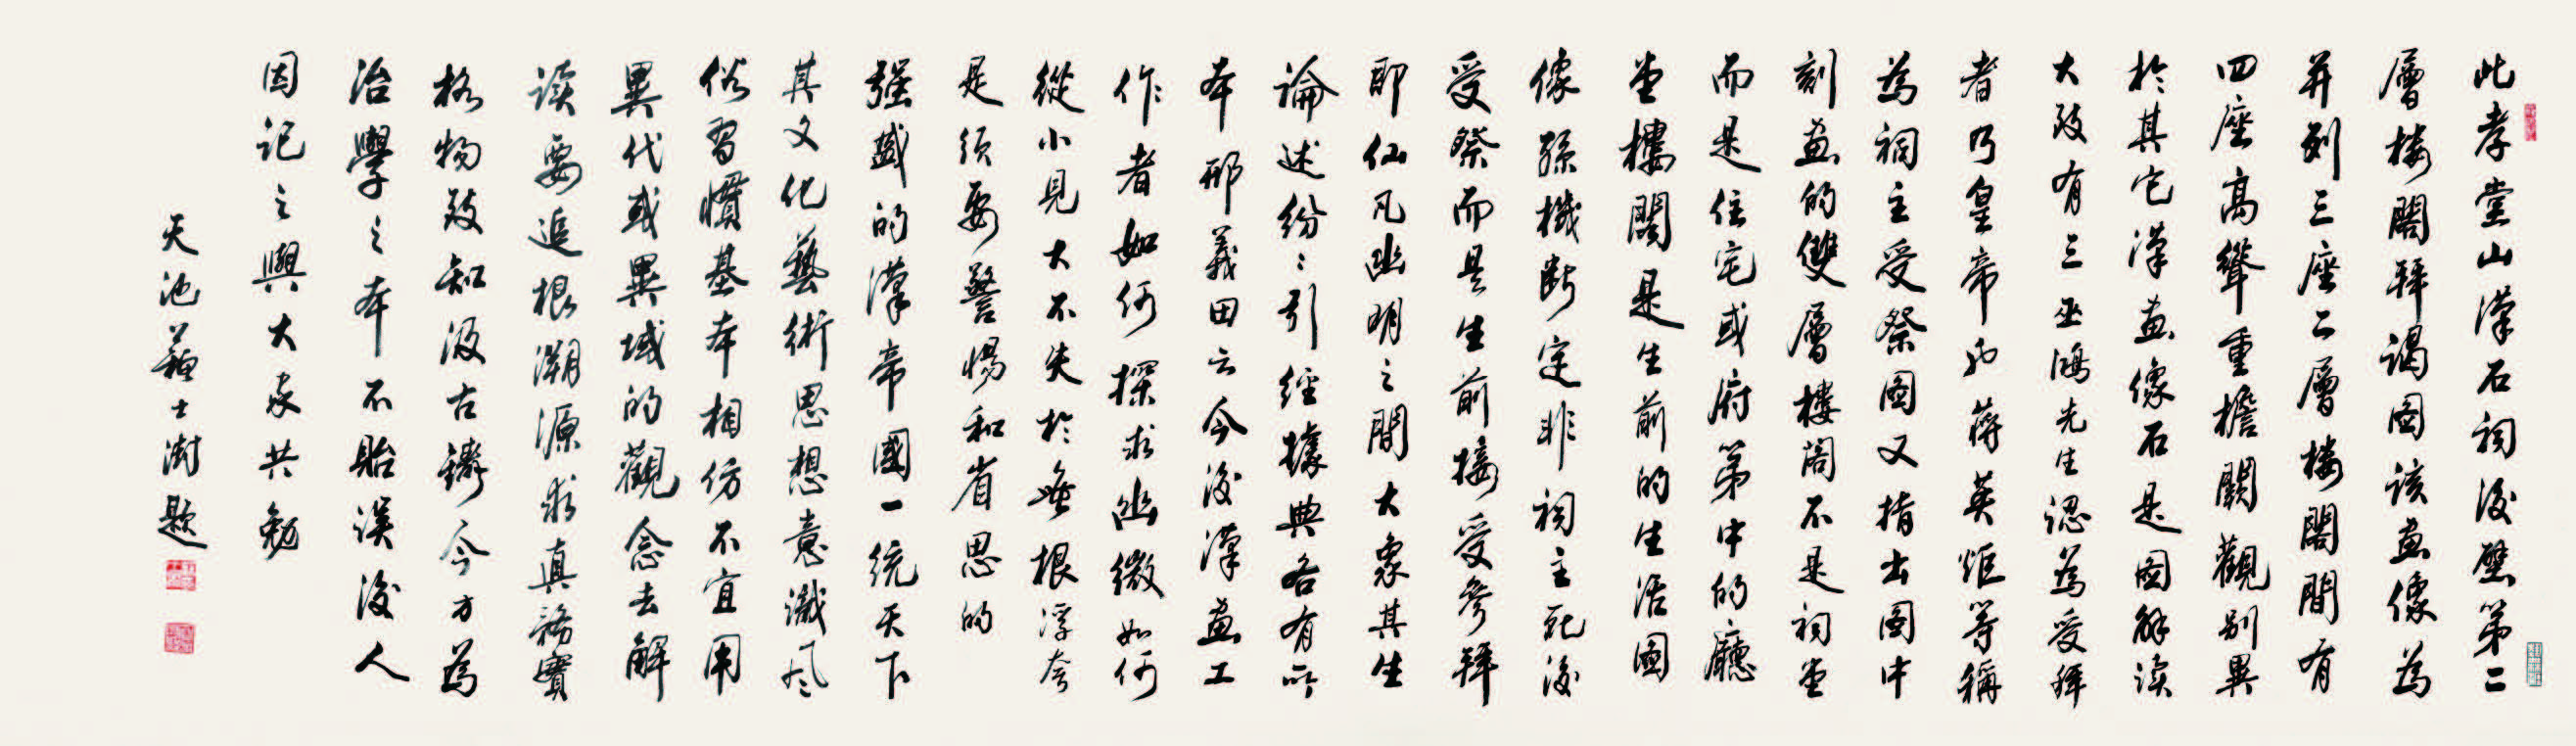 此孝堂山漢石祠後壁第二
層樓閣拜謁圖該畫像為
并列三座二層樓閣間有
四座高聳重檐闕觀別異
於其它漢畫像石是圖解读
大致有三巫鴻先生認為受拜
者乃皇帝而蔣英炬等稱
為祠主受祭圖又指出圖中
刻畫的雙層樓閣不是祠堂
而是住宅或府第中的廳
堂樓閣是生前的生活圖
像孫機斷定非祠主死後
受祭而是生前接受參拜
耶仙凡幽明之間大象其生
論述纷纷引經據典各有所
本邢義田云今後漢畫工
作者如何探求幽微如何
從小見大不失於無根浮夸
是须要警惕和省思的
强盛的漢帝國一统天下
其文化藝術思想意識风
俗習慣基本相仿不宜用
異代或異域的觀念去解
读要追根溯源求真務實
格物致知汲古鑄今方為
治學之本不貽误後人
因記之與大家共勉
天池 士澍題